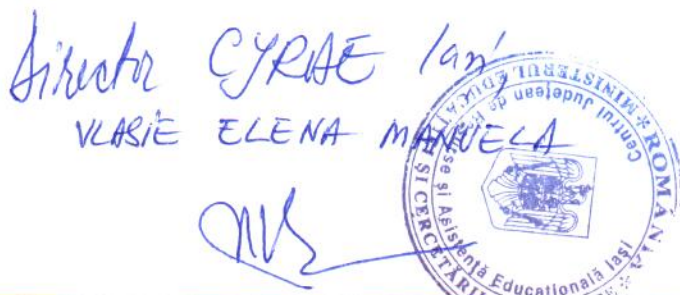 Director CJRAE Iași,
VLASIE ELENA MANUELA
ROMÂNIA * MINISTERUL EDUCAȚIEI ȘI CERCETĂRII
Centrul Județean de Resurse și Asistență Educațională Iași